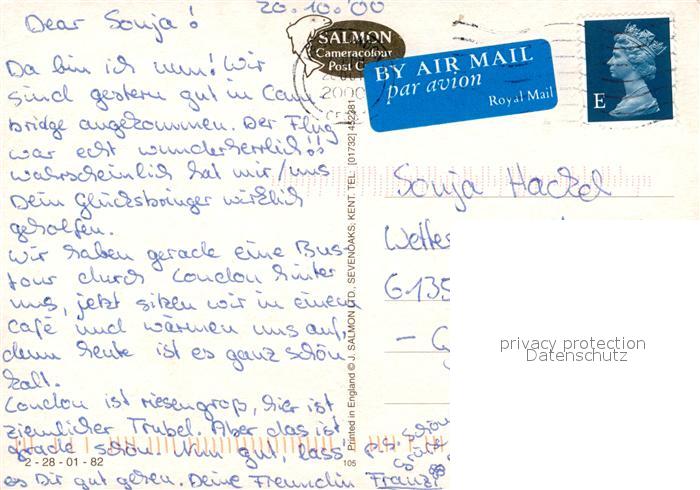 20.10.'00
Dear Sonja!
Da bin ich nun! Wir
sind gestern gut in Cam
bridge angekommen. Der Flug
war echt wunderherrlich!!
wahrscheinlich hat mir/uns
Dein Glücksbringer wirklich
geholfen.
Wir haben gerade eine Bus
tour durch London hinter
uns, jetzt sitzen wir in einem
Café und wärmen uns auf,
denn heute ist es ganz schön
kalt.
London ist riesengroß, hier ist
ziemlicher Trubel. Aber das ist
gerade schön. Nun gut, lass
es Dir gut gehen. Deine Freundin Franzi
P.S. schön
SALMON
Cameracolour
Post C
2000
BY AIR MAIL
par avion
Royal Mail
E
Sonja Hackel
Wetter
6135
privacy protection
Datenschutz
Printed in England © J. SALMON LTD., SEVENOAKS, KENT. TEL: (01732) 452381
105
2 - 28 - 01 - 82